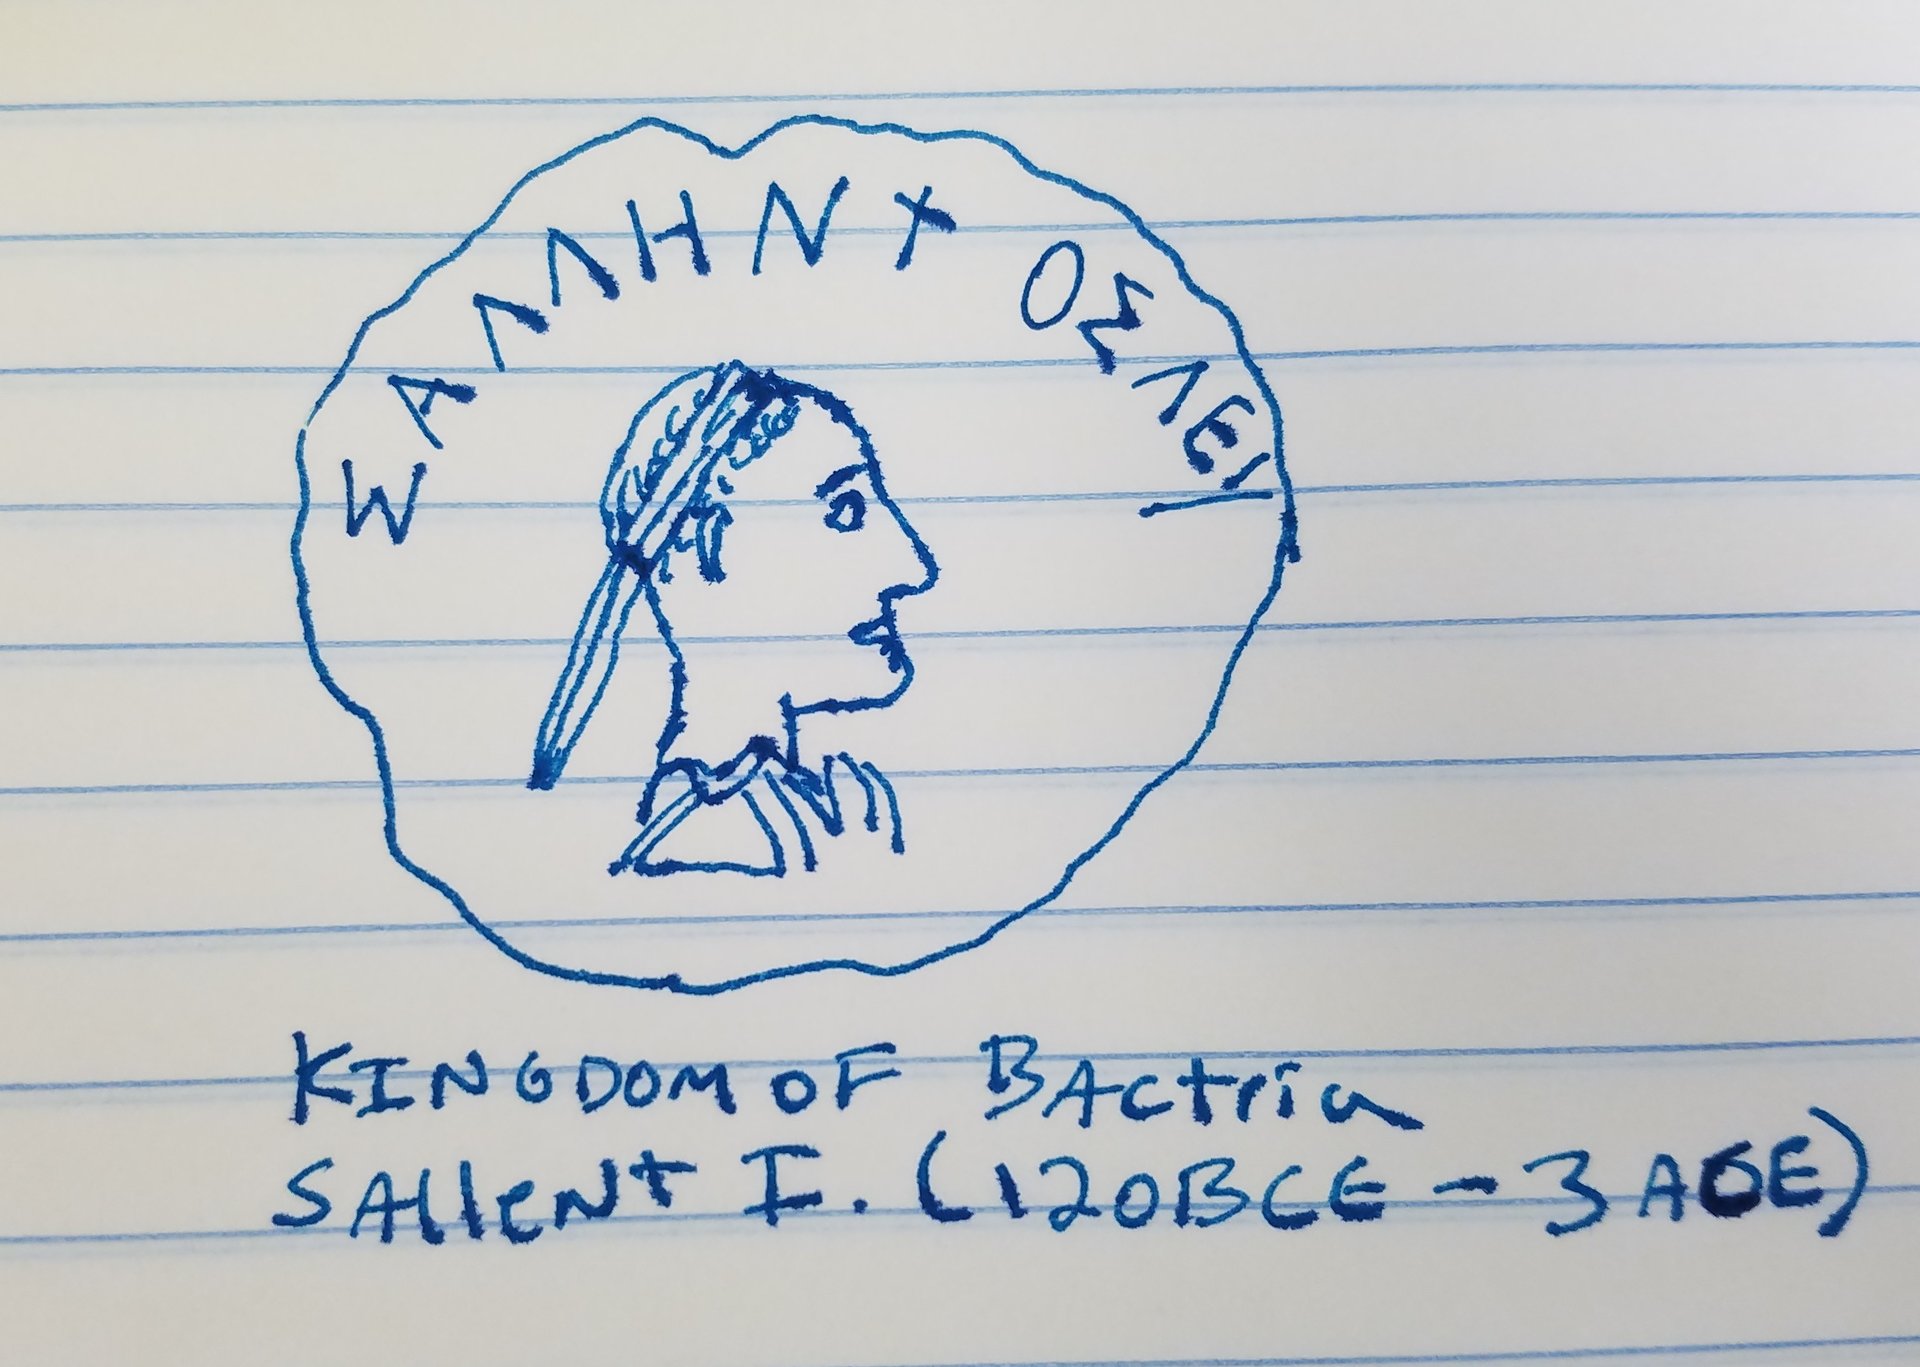 ΣΑΛΛΗΝΤ ΟΣΛΕΙ
KINGDOM OF BActria
SAllENt I. (120BCE - 3 AOE)